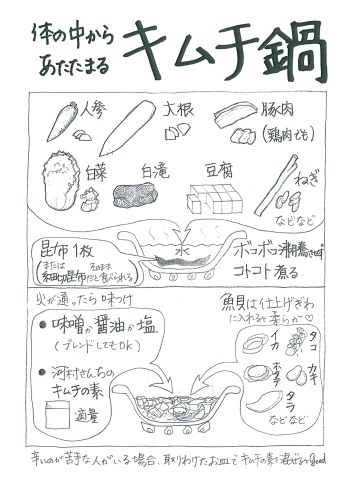 体の中から
あたたまる
キムチ鍋
人参
大根
豚肉
(鶏肉でも)
白菜
白滝
豆腐
ねぎ
などなど
水
昆布1枚
(または
細切昆布だと
そのまま
食べられる)
ボコボコ沸騰させず
コトコト煮る
火が通ったら味つけ
• 味噌か醤油か塩
(ブレンドしてもOK)
• 河村さんちの
キムチの素
適量
魚貝は仕上げぎわ
に入れると柔らか♡
イカ
タコ
ホタテ
カキ
タラ
などなど
辛いのが苦手な人がいる場合、取りわけたお皿でキムチの素を混ぜるでgood